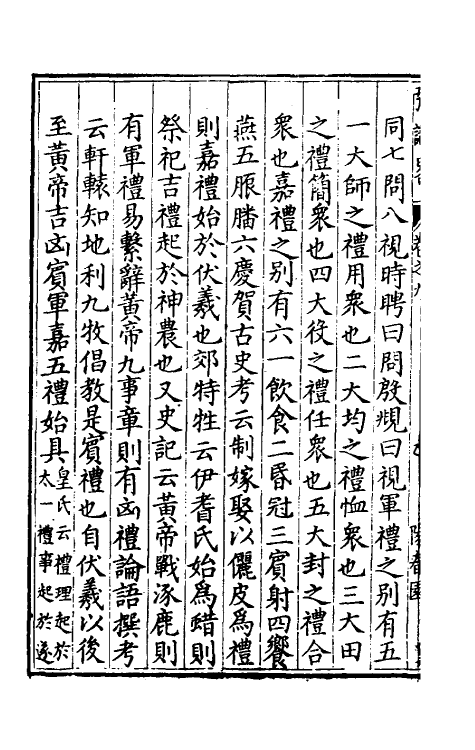 同七問八視時聘曰問殷覜曰視軍禮之别有五
一大師之禮用衆也二大均之禮恤衆也三大田
之禮簡衆也四大役之禮任衆也五大封之禮合
衆也嘉禮之别有六一飲食二昏冠三賓射四饗
燕五脤膰六慶賀古史考云制嫁娶以儷皮爲禮
則嘉禮始於伏羲也郊特牲云伊耆氏始爲蜡則
祭祀吉禮起於神農也又史記云黄帝戰涿鹿則
有軍禮易繫辭黄帝九事章則有凶禮論語撰考
云軒轅知地利九牧倡教是賓禮也自伏羲以後
至黄帝吉凶賓軍嘉五禮始具皇氏云禮理起於
太一禮事起於遂